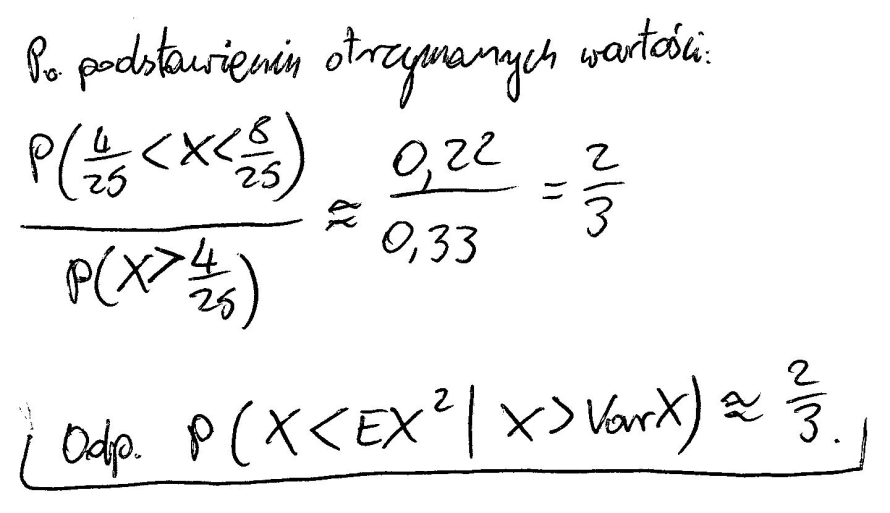 Po podstawieniu otrzymanych wartości:
P(4/25 < X < 8/25) / P(X > 4/25) ≈ 0,22 / 0,33 = 2/3
Odp. P(X < EX² | X > VarX) ≈ 2/3.